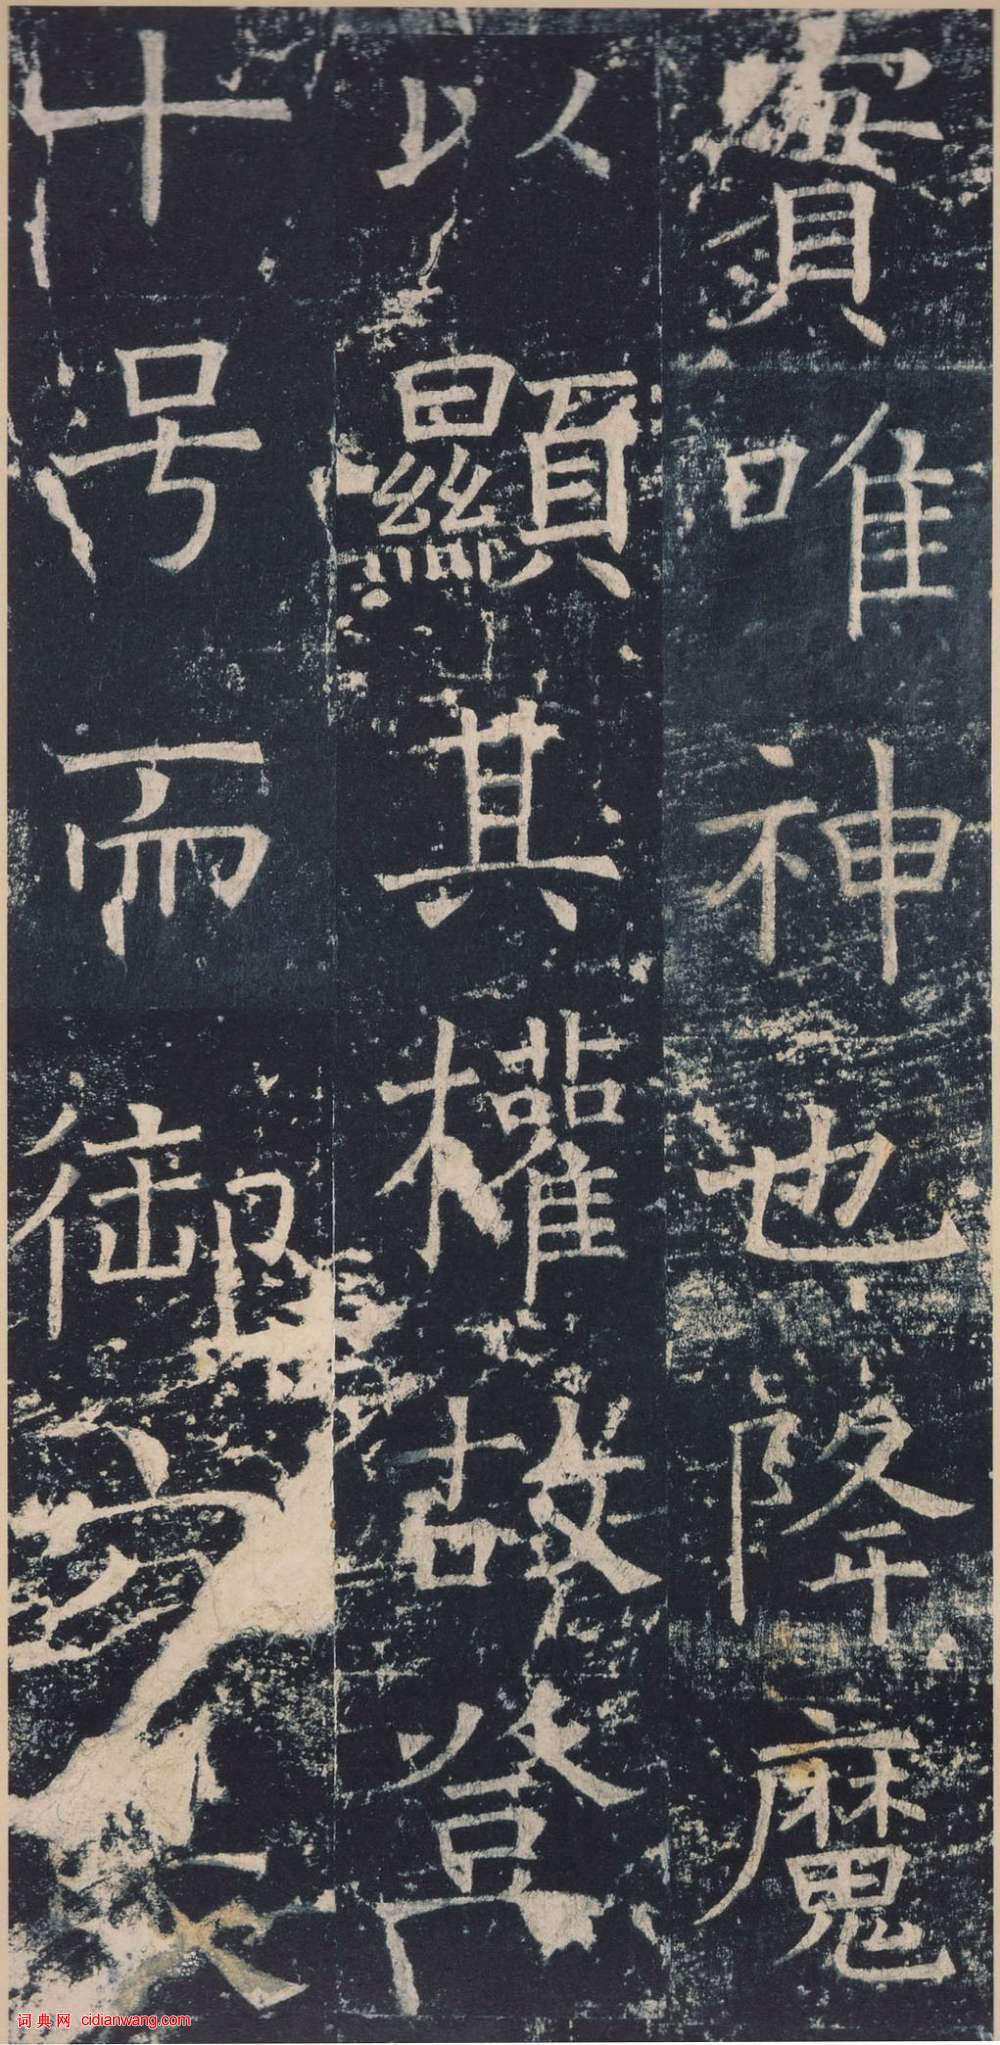 實唯神也降魔
以顯其權故登
十号而御
词典网 cidianwang.com